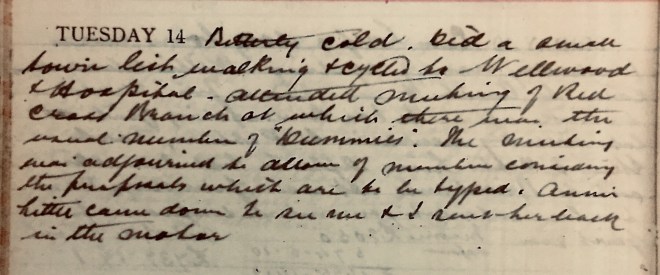 TUESDAY 14 Bitterly cold. Did a small
town list, walking & cycled to Wellwood
& Hospital. attended meeting of Red
Cross Branch at which there was the
usual number of "Dummies". The meeting
was adjourned to allow of members considering
the proposals which are to be typed. Annie
came down to see me & I sent her back
in the motor